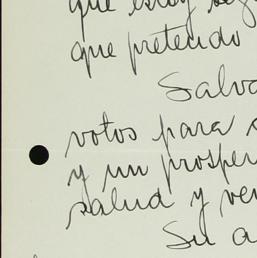 que estoy seg
que pretendo
Salva
votos para
y un prosper
salud y ven
Su a